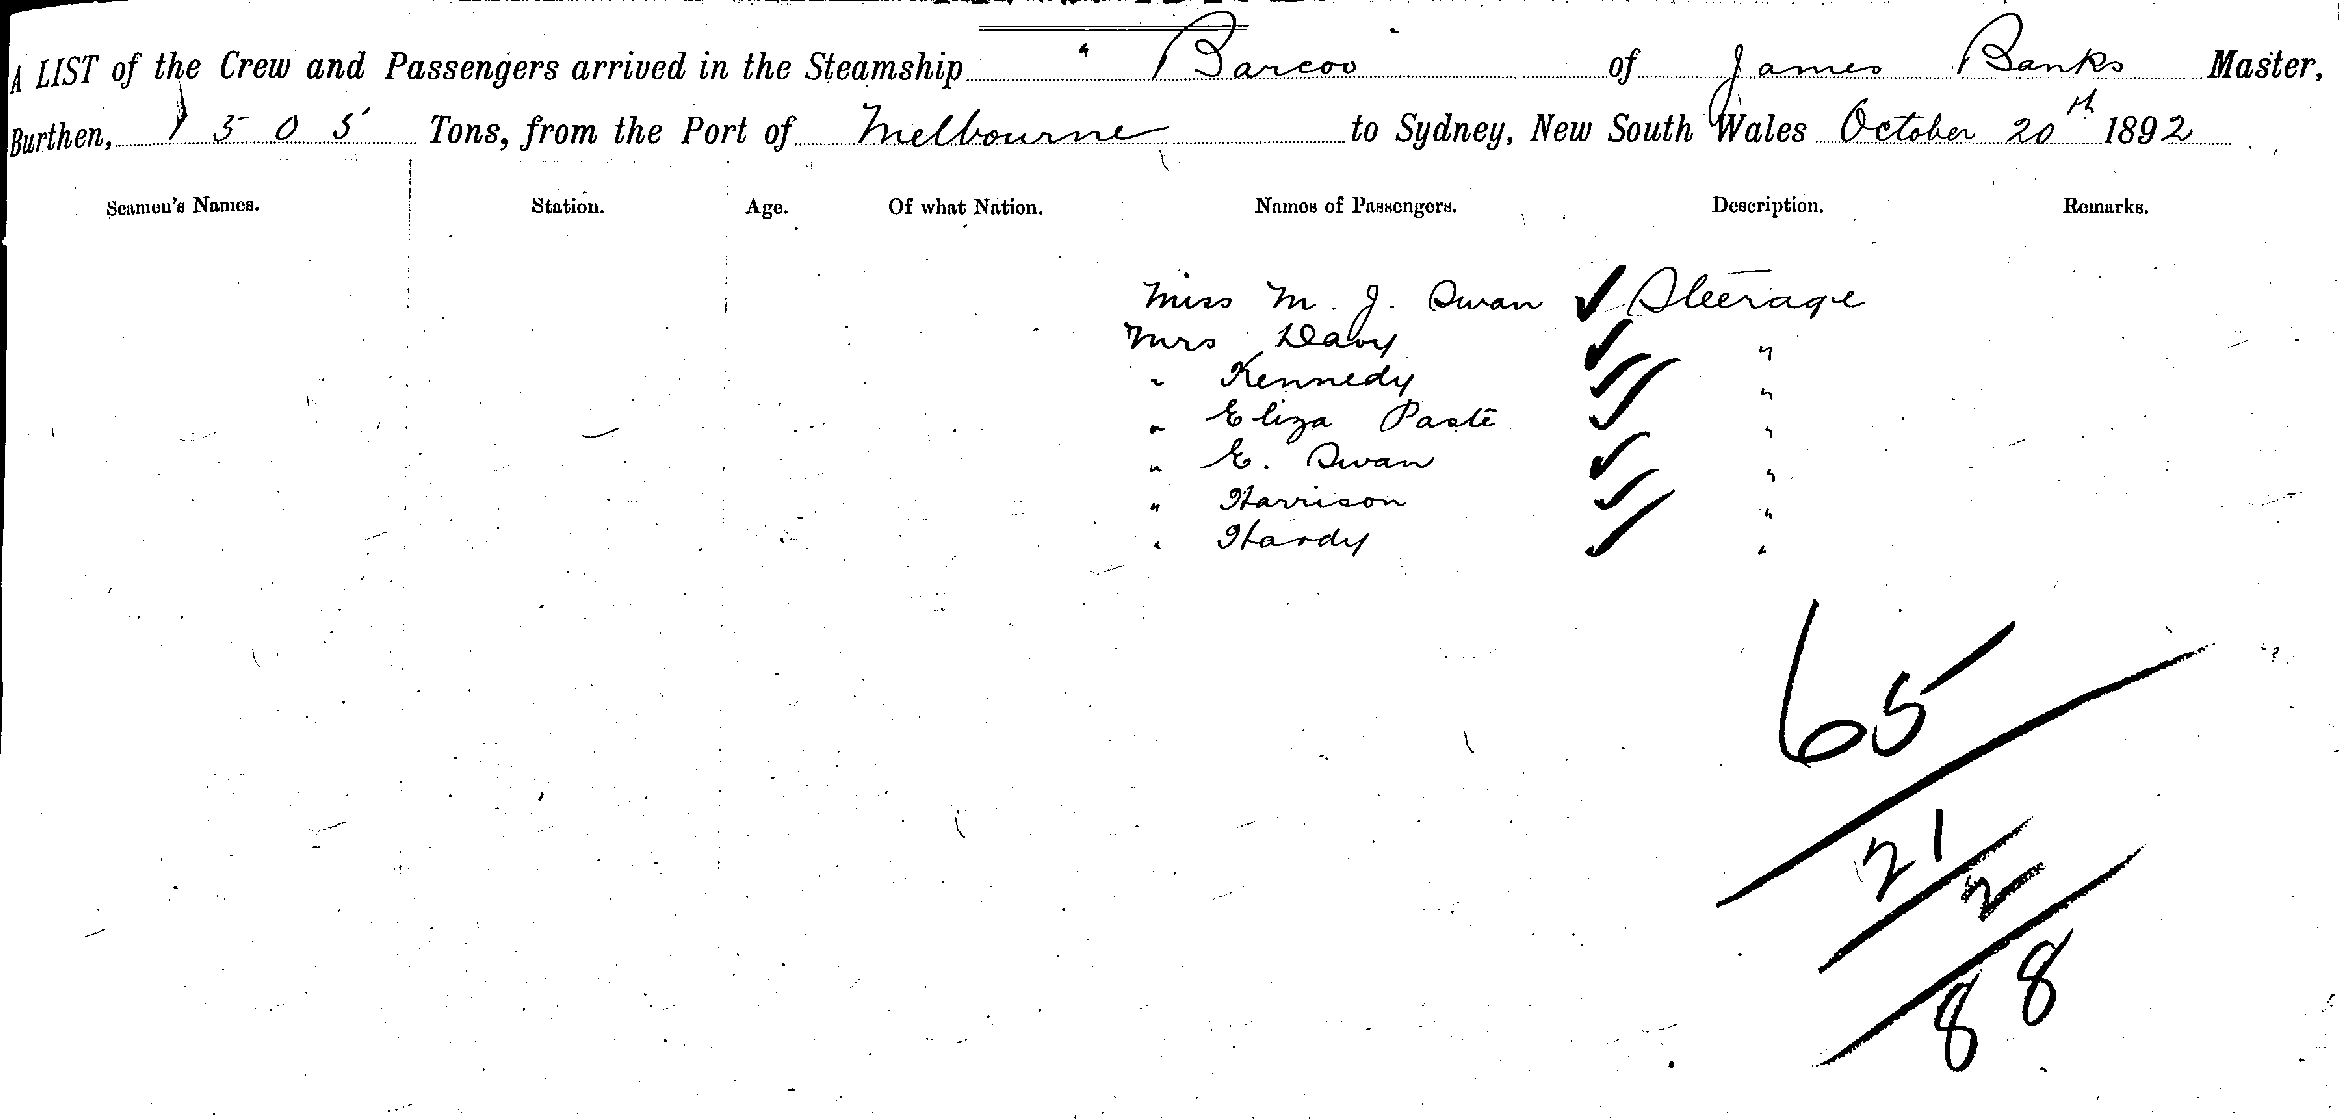 A LIST of the Crew and Passengers arrived in the Steamship " Barcoo " of James Banks Master,
Burthen, 1505 Tons, from the Port of Melbourne to Sydney, New South Wales October 20th 1892
Seamen's Names. Station. Age. Of what Nation. Names of Passengers. Description. Remarks.
Miss M. J. Swan ✓ Steerage
Mrs Davy ✓ "
" Kennedy ✓ "
" Eliza Paste ✓ "
" E. Swan ✓ "
" Harrison ✓ "
" Hardy ✓ "
65
21
2
88